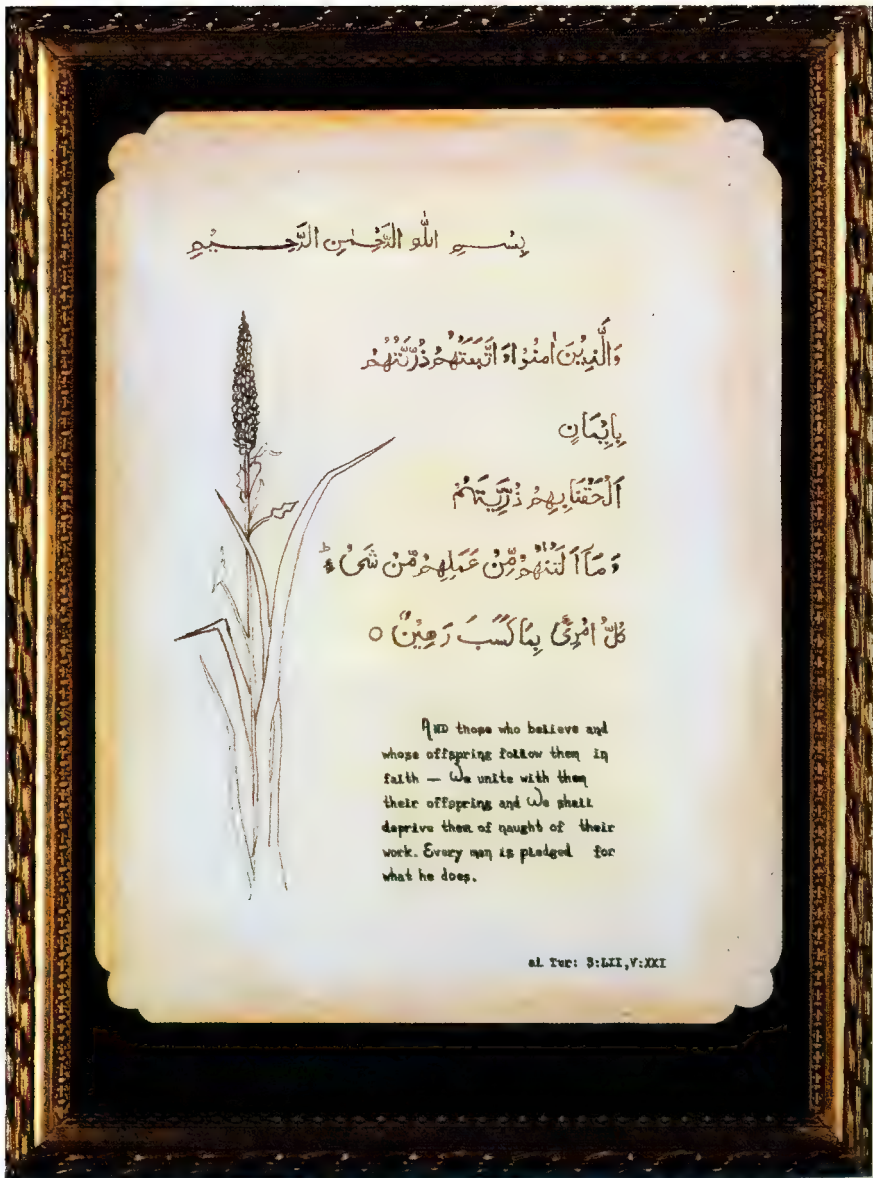 بِسْــمِ اللّٰهِ الرَّحْمٰنِ الرَّحِــيْمِ
وَالَّذِيْنَ اٰمَنُوْا وَ اتَّبَعَتْهُمْ ذُرِّيَّتُهُمْ
بِاِيْمَانٍ
اَلْحَقْنَا بِهِمْ ذُرِّيَّتَهُمْ
وَ مَاۤ اَلَتْنٰهُمْ مِّنْ عَمَلِهِمْ مِّنْ شَىْءٍ ؕ
كُلُّ امْرِئٍۢ بِمَا كَسَبَ رَهِيْنٌ ○
AND those who believe and
whose offspring follow them in
faith — We unite with them
their offspring and We shall
deprive them of naught of their
work. Every man is pledged for
what he does.
al Tur: S:LII,V:XXI